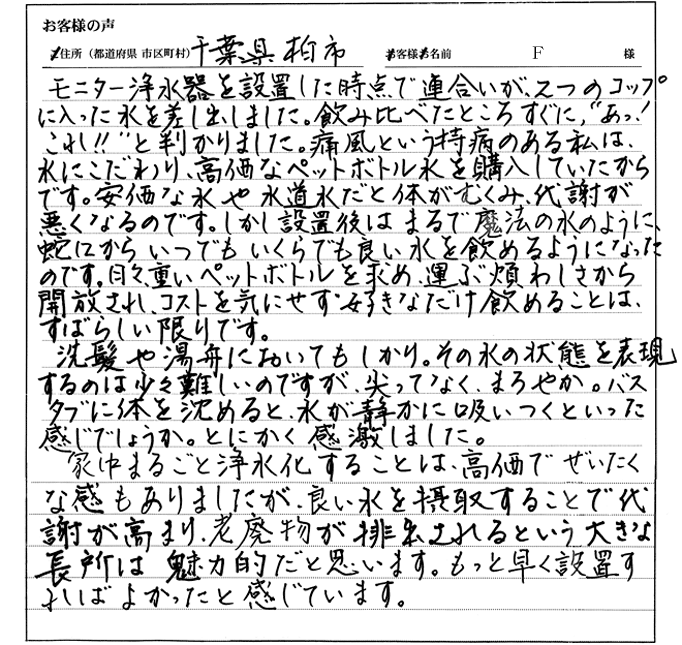 お客様の声
住所（都道府県 市区町村）千葉県柏市 お客様お名前 F 様
モニター浄水器を設置した時点で連合いが、2つのコップ
に入った水を差し出しました。飲み比べたところすぐに、“あっ！
これ!!”と判かりました。痛風という持病のある私は、
水にこだわり、高価なペットボトル水を購入していたから
です。安価な水や水道水だと体がむくみ、代謝が
悪くなるのです。しかし設置後はまるで魔法の水のように、
蛇口からいつでもいくらでも良い水を飲めるようになった
のです。日々重いペットボトルを求め、運ぶ煩わしさから
開放され、コストを気にせず好きなだけ飲めることは、
すばらしい限りです。
洗髪や湯舟においてもしかり。その水の状態を表現
するのは少々難しいのですが、尖ってなく、まろやか。バス
タブに体を沈めると、水が静かに吸いつくといった
感じでしょうか。とにかく感激しました。
家中まるごと浄水化することは、高価でぜいたく
な感もありましたが、良い水を摂取することで代
謝が高まり、老廃物が排出されるという大きな
長所は魅力的だと思います。もっと早く設置す
ればよかったと感じています。